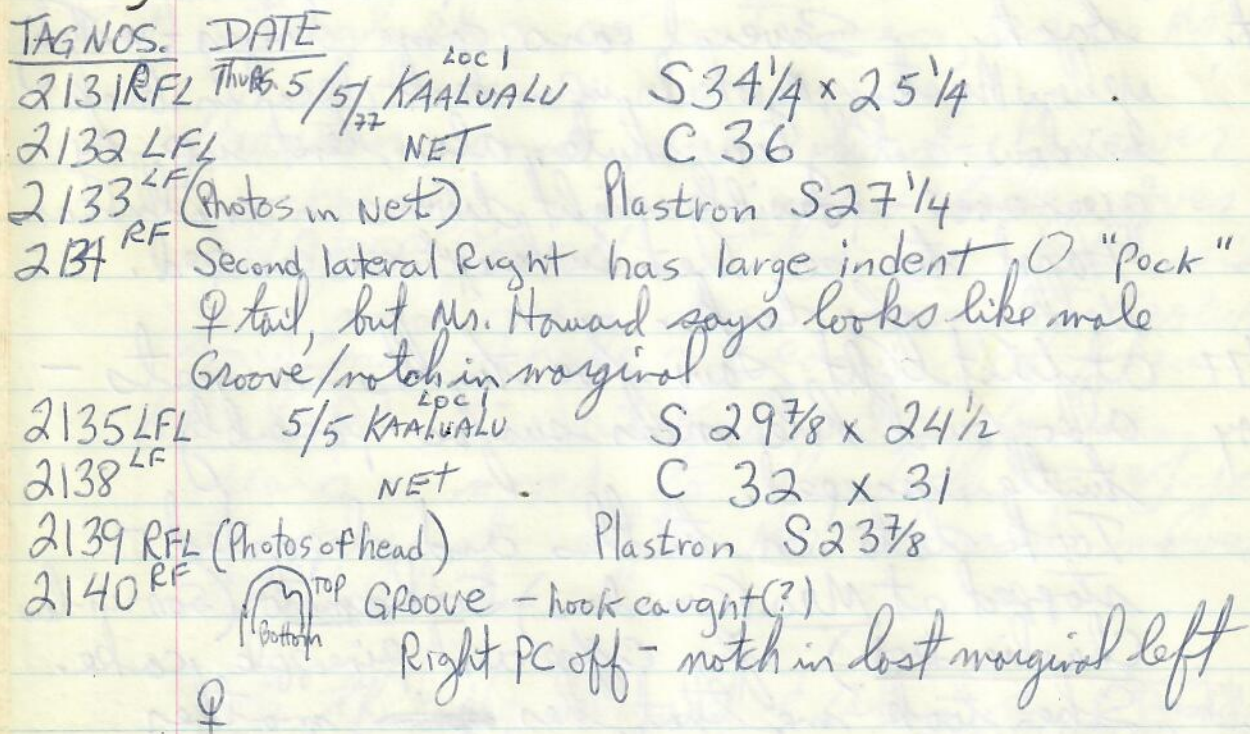 TAG NOS. DATE
2131 RFL Thurs. 5/5/77 KAALUALU LOC 1 S 34 1/4 x 25 1/4
2132 LFL NET C 36
2133 LF (Photos in Net) Plastron S 27 1/4
2134 RF Second lateral Right has large indent O "Pock"
♀ tail, but Mr. Howard says looks like male
Groove/notch in marginal
2135 LFL 5/5 KAALUALU LOC 1 S 29 7/8 x 24 1/2
2138 LF NET C 32 x 31
2139 RFL (Photos of head) Plastron S 23 7/8
2140 RF TOP Bottom GROOVE - hook caught (?)
Right PC off - notch in last marginal left
♀